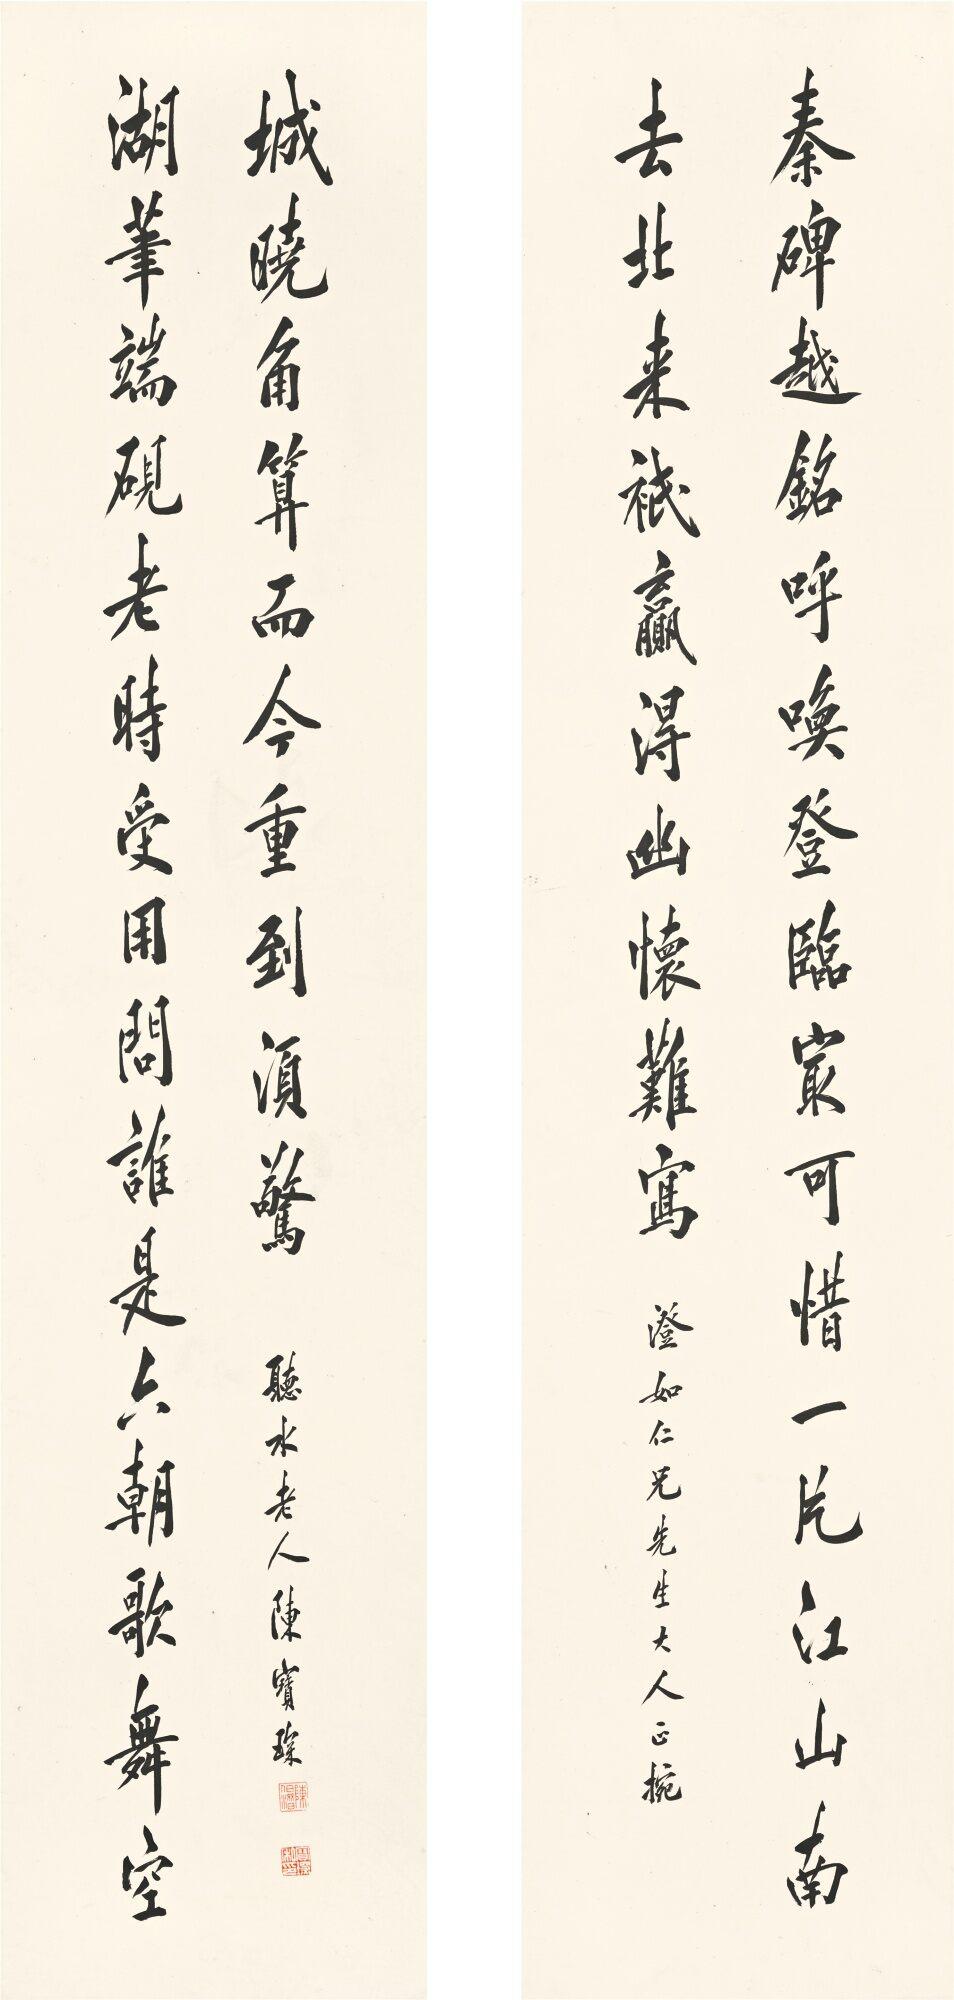 秦碑越銘呼喚登臨㝡可惜一片江山南
去北来祇贏得幽懷難寫
澄如仁兄先生大人正捥
湖筆端硯老時受用問誰是六朝歌舞空
城曉角算而今重到須驚
聽水老人陳寶琛
陳伯潛